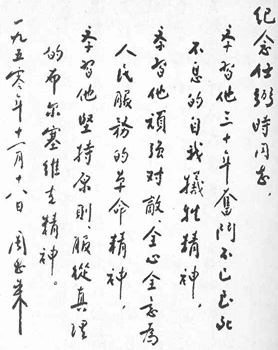 紀念任弼時同志,
学習他三十年奮鬥不已至死
不息的自我犧牲精神,
学習他頑強对敵全心全意為
人民服務的革命精神,
学習他堅持原則、服從真理
的布尔塞維克精神。
一九五零年十一月十八日 周恩来